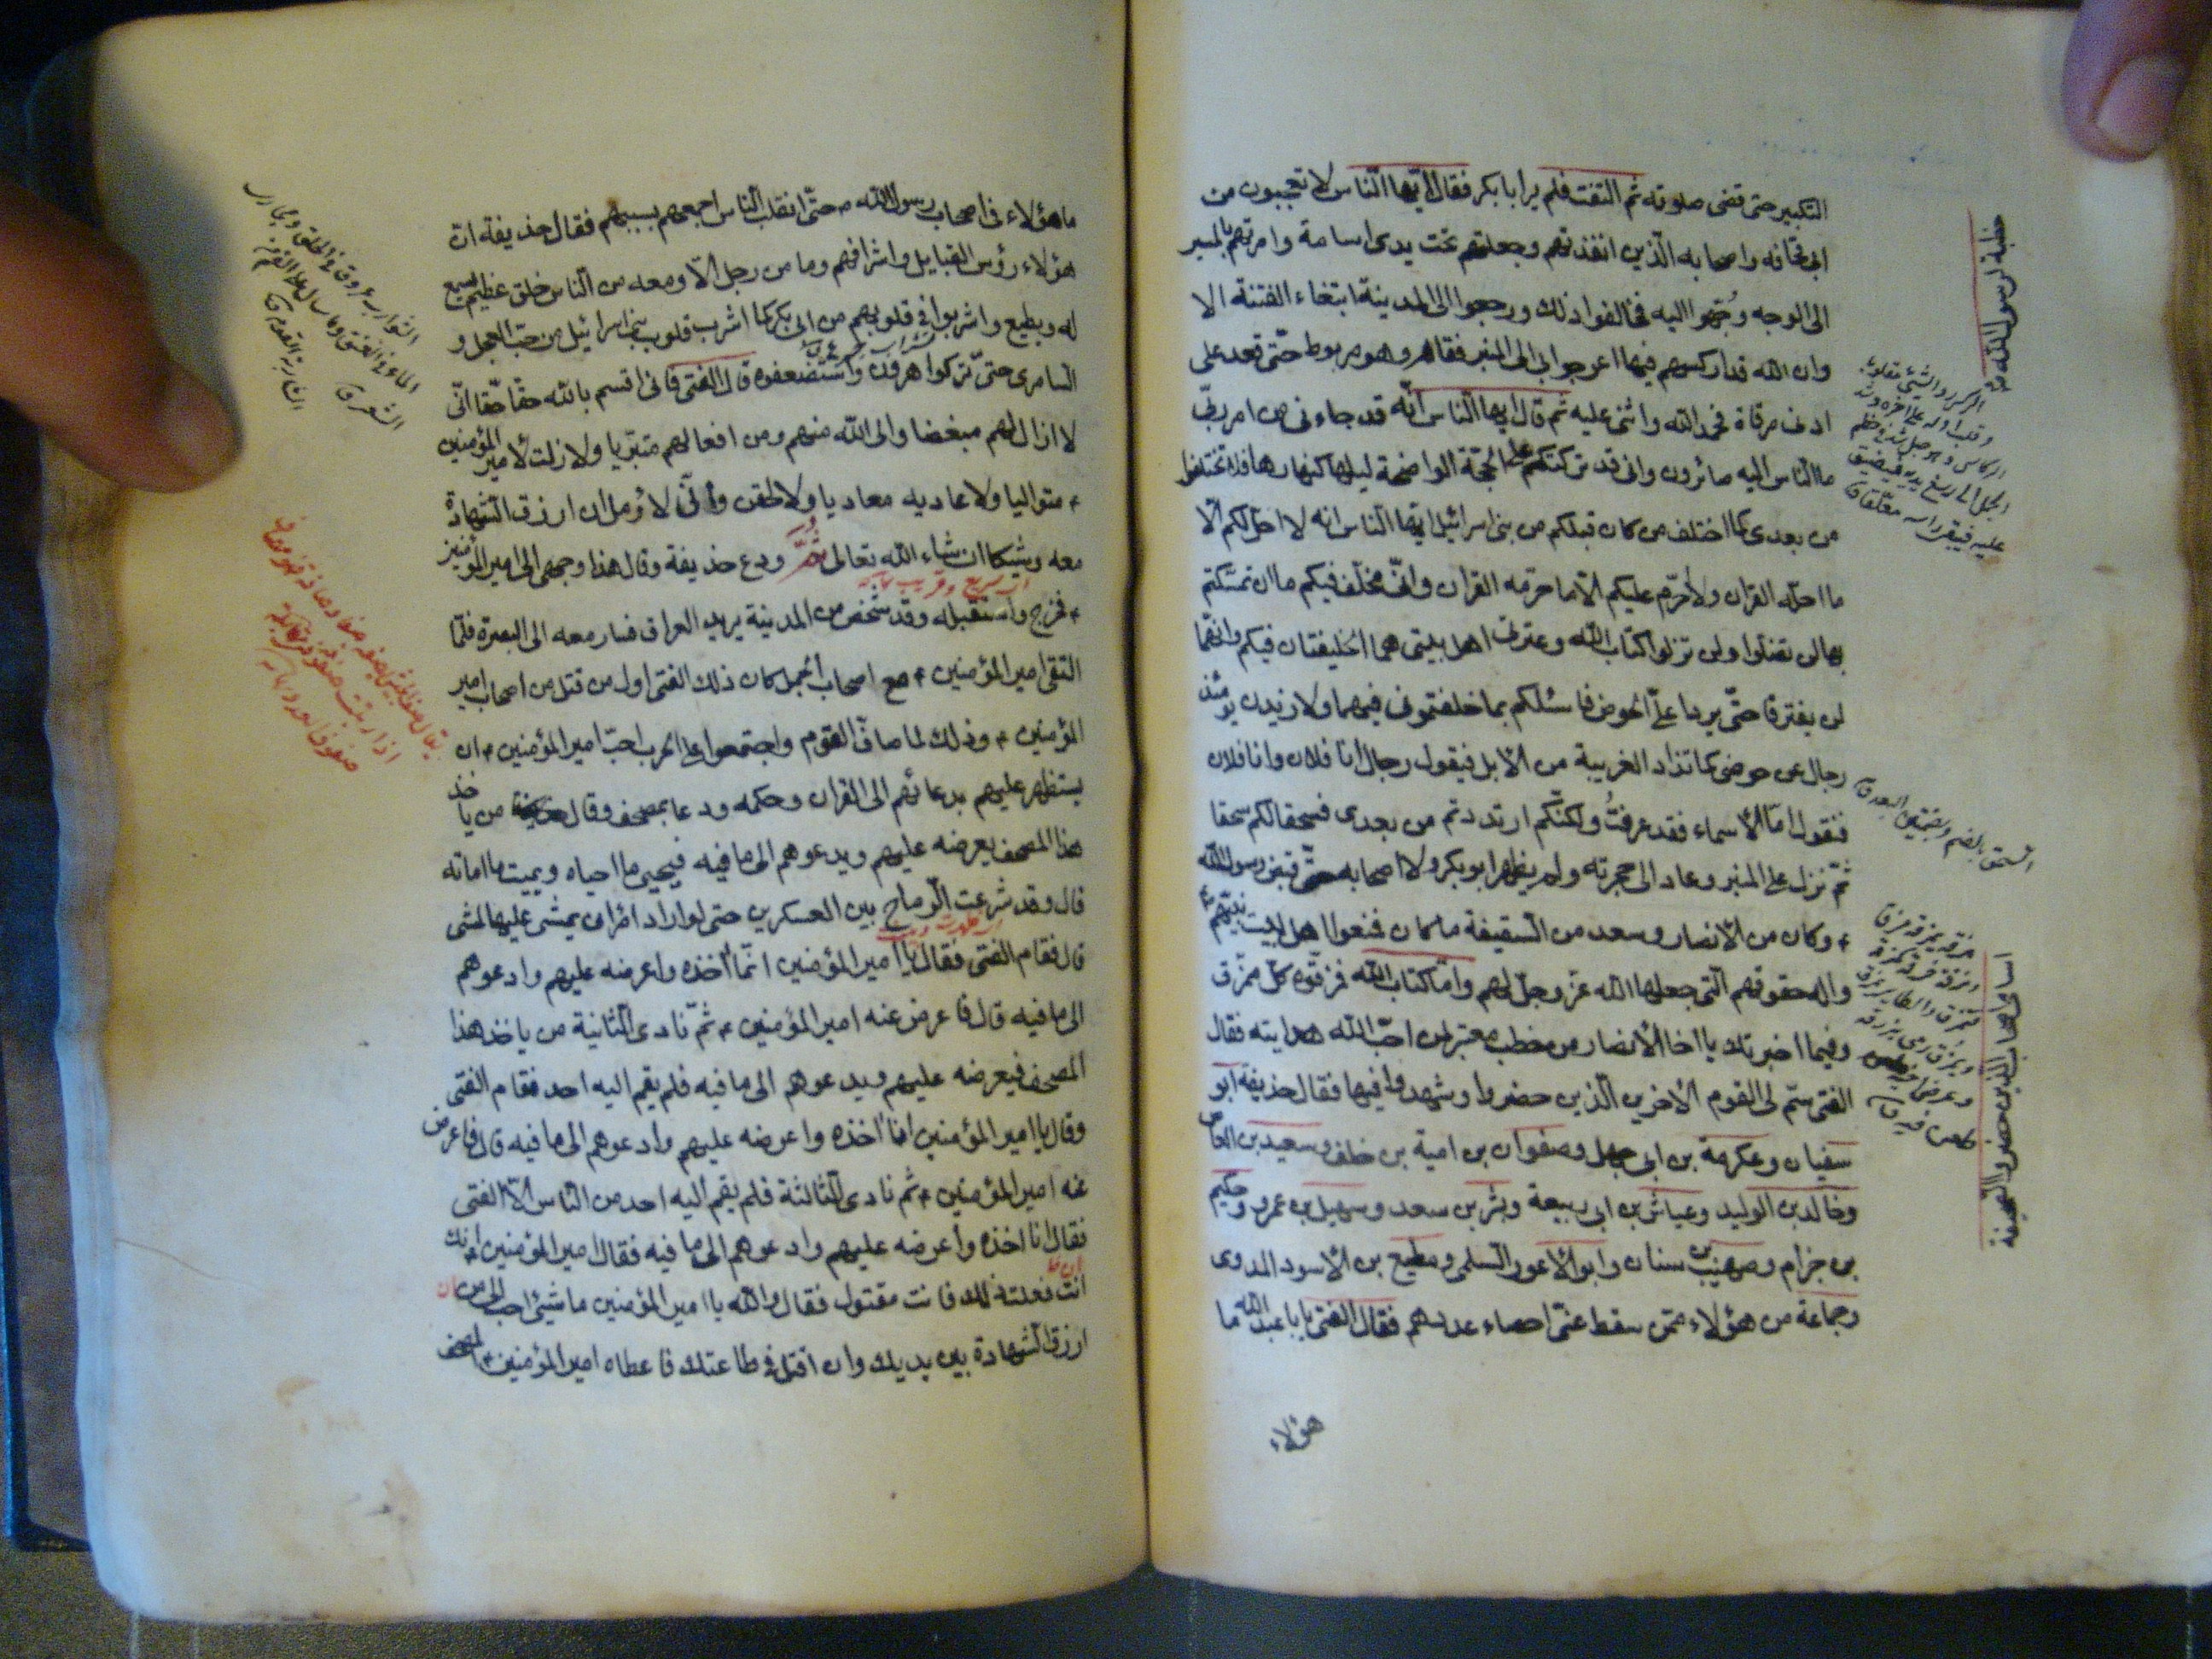 التكبير حتى قضى صلوته ثم التفت فلم ير ابا بكر فقال ايّها النّاس لا تعجبون من
ابن قحافه واصحابه الّذين انفذتهم وجعلتهم تحت يدى اسامة وامرتهم بالمسير
الى الوجه وُجّهوا اليه فخالفوا ذلك ورجعوا الى المدينة ابتغاء الفتنة الا
وان الله قد اركسهم فيها اعرجوا بى الى المنبر فقام وهو مربوط حتّى قعد على
ادنى مرقاة فحمد الله واثنى عليه ثم قال ايها النّاس انّه قد جاءنى من امر ربّى
ما النّاس اليه صائرون وانى قد تركتكم على الحجّة الواضحة ليلها كنهارها فلا تختلفوا
من بعدى كما اختلف من كان قبلكم من بنى اسرائيل ايّها النّاس انه لا احلّ لكم الّا
ما احلّه القران ولا احرّم عليكم الّا ما حرّمه القران وانّى مخلّف فيكم ما ان تمسّكتم
بها لن تضلّوا ولن تزلوا كتاب الله وعترتى اهل بيتى هما الخليفتان فيكم وانّهما
لن يفترقا حتّى يردا علىّ الحوض فاسئلكم بما خلفتمونى فيهما ولا زيدن يومئذ
رجال عن حوضى كما تذاد الغريبة من الأبل فيقول رجال انا فلان وانا فلان
فنقول امّا الأسماء فقد عرفتُ ولكنّكم ارتددتم من بعدى فسحقا لكم سحقا
ثمّ نزل على المنبر وعاد الى حجرته ولم يظهر ابو بكر ولا اصحابه حتّى قبض رسول الله
وكان من الأنصار وسعد من السقيفة ما كان فمنعوا اهل بيت نبيّهم
واله حقوقهم الّتى جعلها الله عزّ وجلّ لهم وامّا كتاب الله فمزقّوه كلّ ممزّق
وفيما اخبرتك يا اخا الأنصار من خطب معتبر لمن احبّ الله هدايته فقال
الفتى سمّ لى القوم الأخرين الّذين حضروا وشهدوا فيها فقال حذيفة ابو
سفيان وعكرمة بن ابى جهل وصفوان بن امية بن خلف وسعيد بن العاص
وخالد بن الوليد وعياش بن ابى ربيعة وبشر بن سعد وسهيل بن عمرو وحكيم
بن حزام وصهيب بن سنان وابو الأعور السلمى ومطيع بن الأسود المدوى
وجماعة من هؤلاء ممّن سقط عنّى احصاء عددهم فقال الفتى يا ابا عبد الله ما
هؤلاء
خطبة لرسول الله
اسامى اصحاب الذين حضروا الصحيفة
السحق بالضم وبضمتين البعد ق
ما هؤلاء فى اصحاب رسول الله ص حتّى انقلب النّاس اجمعهم بسببهم فقال حذيفة انّ
هؤلاء رؤس القبايل واشرافهم وما من رجل الّا ومعه من النّاس خلق عظيم يسمع
له ويطيع واشربوا فى قلوبهم من ابى بكر كما اشرب قلوب بنى اسرائيل من حبّ العجل و
السامرى حتىّ تركوا هرون واستضعفوه قال الفتى فانى اقسم بالله حقّا حقّا انّى
لا ازال لهم مبغضا والى الله منهم ومن افعالهم متبرّيا ولا زلت لأمير المؤمنين
متواليا ولاعاديه معاديا ولا لحقن وانّى لا ؤمل ان ارزق الشهادة
معه وشيكا ان شاء الله تعالى ثمّ ودع حذيفة وقال هذا وجهى الى امير المؤمنين
فخرج واستقبله وقد شخص من المدينة يريد العراق فسار معه الى البصرة فلمّا
التقى امير المؤمنين مع اصحاب الجمل كان ذلك الفتى اول من قتل من اصحاب امير
المؤمنين وذلك لما صافّ القوم واجتمعوا على الحرب احبّ امير المؤمنين ان
يستظهر عليهم بدعائهم الى القران وحكمه ودعا بمصحف وقال من ياخذ
هذا المصحف يعرضه عليهم ويدعوهم الى ما فيه فيحيى ما احياه ويميت ما اماته
قال وقد شرعت الرّماح بين العسكرين حتى لو اراد امرؤ يمشى عليها لمشى
قال فقام الفتى فقال يا امير المؤمنين انّا اخذه واعرضه عليهم وادعوهم
الى ما فيه قال فاعرض عنه امير المؤمنين ثمّ نادى الثّانية من ياخذ هذا
المصحف فيعرضه عليهم ويدعوهم الى ما فيه فلم يقم اليه احد فقام الفتى
وقال يا امير المؤمنين انا اخذه واعرضه عليهم وادعوهم الى ما فيه قال فاعرض
عنه امير المؤمنين ثم نادى الثّالثة فلم يقم اليه احد من النّاس الّا الفتى
فقال انا اخذه واعرضه عليهم وادعوهم الى ما فيه فقال امير المؤمنين انك
انت فعلت ذلك فانت مقتول فقال والله يا امير المؤمنين ما شيئ احب الى من ان
ارزق الشهادة بين يديك وان اقتل فى طاعتك فاعطاه امير المؤمنين المصحف